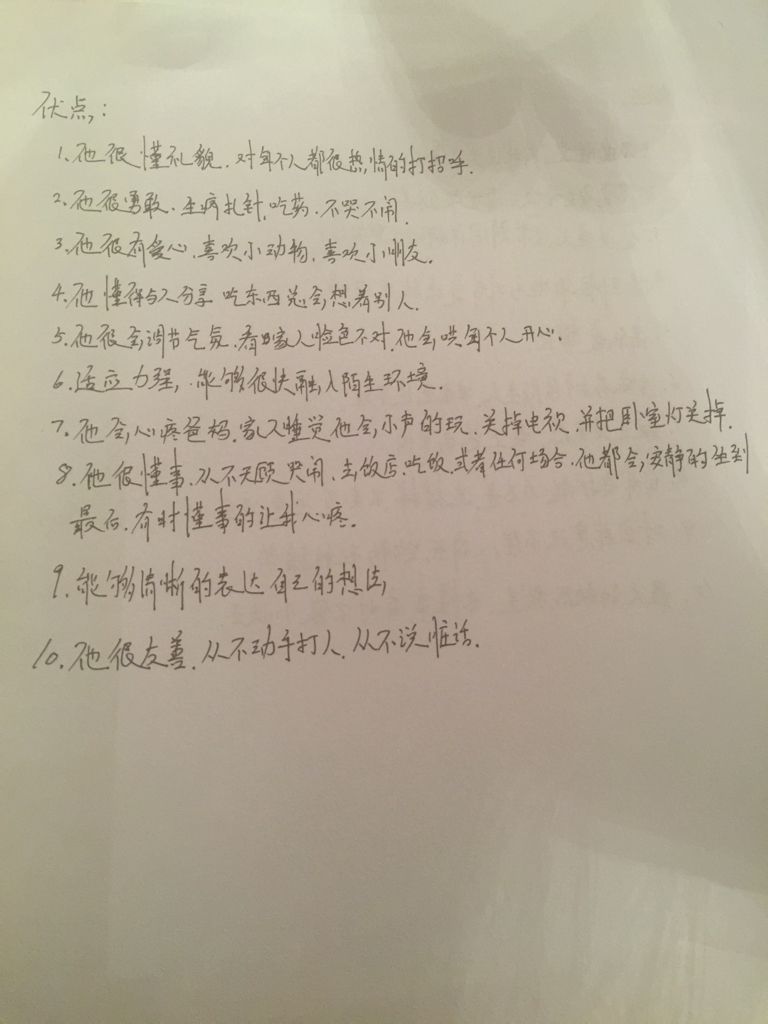 优点:
1.他很懂礼貌.对每个人都很热情的打招呼.
2.他很勇敢.生病扎针,吃药.不哭不闹.
3.他很有爱心.喜欢小动物.喜欢小朋友.
4.他懂得与人分享 吃东西总会想着别人.
5.他很会调节气氛.看到家人脸色不对.他会哄每个人开心.
6.适应力强,能够很快融入陌生环境.
7.他会心疼爸妈.家人睡觉他会小声的玩.关掉电视.并把卧室灯关掉.
8.他很懂事.从不无顾哭闹.去饭店.吃饭.或者任何场合.他都会安静的坐到
最后.有时懂事的让我心疼.
9.能够清晰的表达自己的想法
10.他很友善.从不动手打人.从不说脏话.